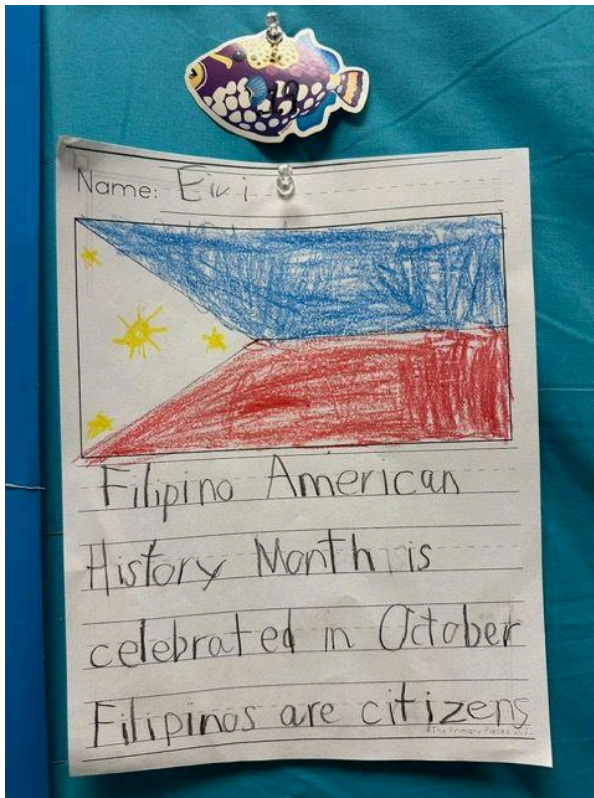 19
Name: Eivi
Filipino American
History Month is
celebrated in October
Filipinos are citizens
©The Primary Pieces